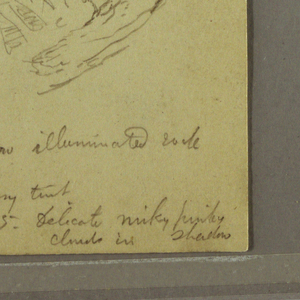 illuminated rock
tint
5- Delicate milky pinky
clouds in shadow